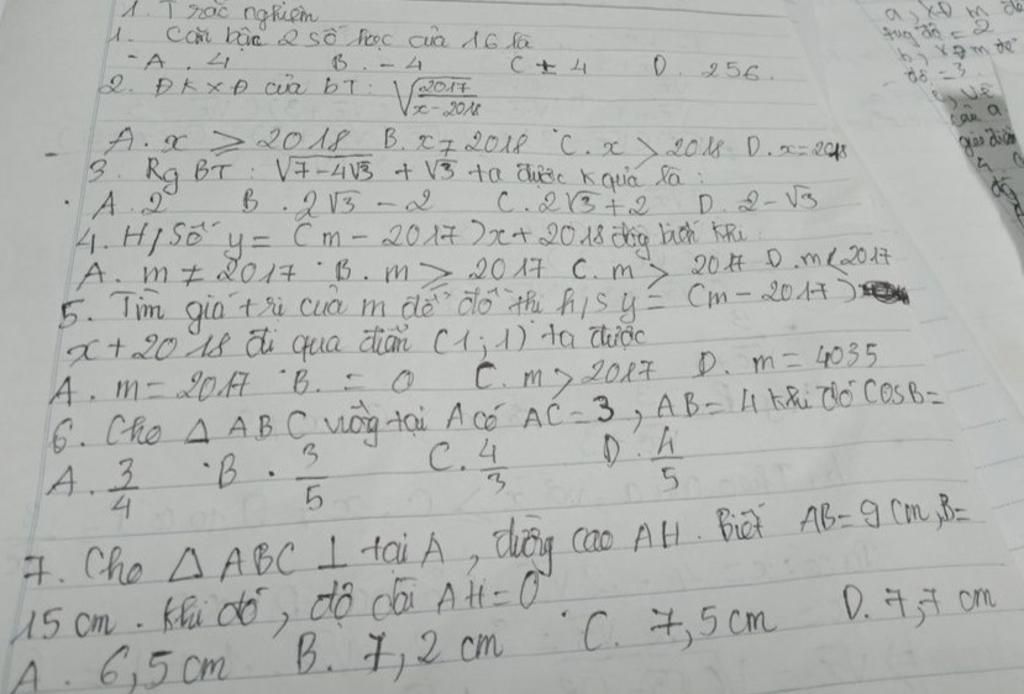 1. Trắc nghiệm
1. Căn bậc 2 số học của 16 là
A. 4 B. -4 C ± 4 D. 256.
2. ĐKXĐ của bT: √(2017/(x-2018))
A. x ≥ 2018 B. x ≠ 2018 C. x > 2018 D. x=2018
3. Rg BT: √(7-4√3) + √3 ta được k quả là:
A. 2 B. 2√3 - 2 C. 2√3 + 2 D. 2-√3
4. H/Số y = (m-2017)x + 2018 đồg biến khi
A. m ≠ 2017 B. m ≥ 2017 C. m > 2017 D. m < 2017
5. Tìm giá trị của m để đồ thị h/s y = (m-2017)
x + 2018 đi qua điểm (1; 1) ta được
A. m = 2017 B. = 0 C. m > 2017 D. m = 4035
6. Cho △ABC vuông tại A có AC = 3, AB = 4 khi đó COSB =
A. 3/4 B. 3/5 C. 4/3 D. 4/5
7. Cho △ABC ⊥ tại A, đường cao AH. Biết AB = 9 cm, B=
15 cm. khi đó, độ dài AH = 0
A. 6,5 cm B. 7,2 cm C. 7,5 cm D. 7,7 cm
a, XĐ m để
tug độ = 2
b, XĐ m để
độ = 3
c, vẽ
câu a
giao điểm